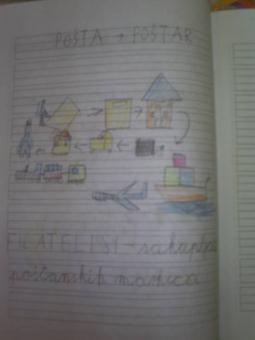 POŠTA → POŠTAR
FILATELIST - sakuplja
poštanskih markica